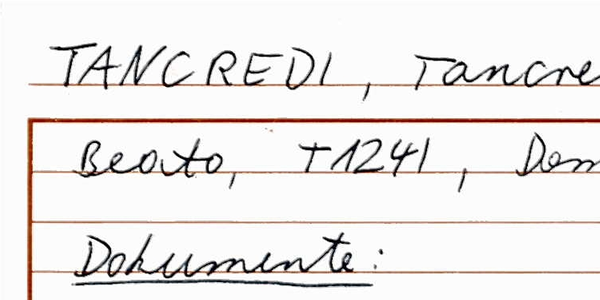 TANCREDI, Tancre
Beato, †1241, Dom
Dokumente: